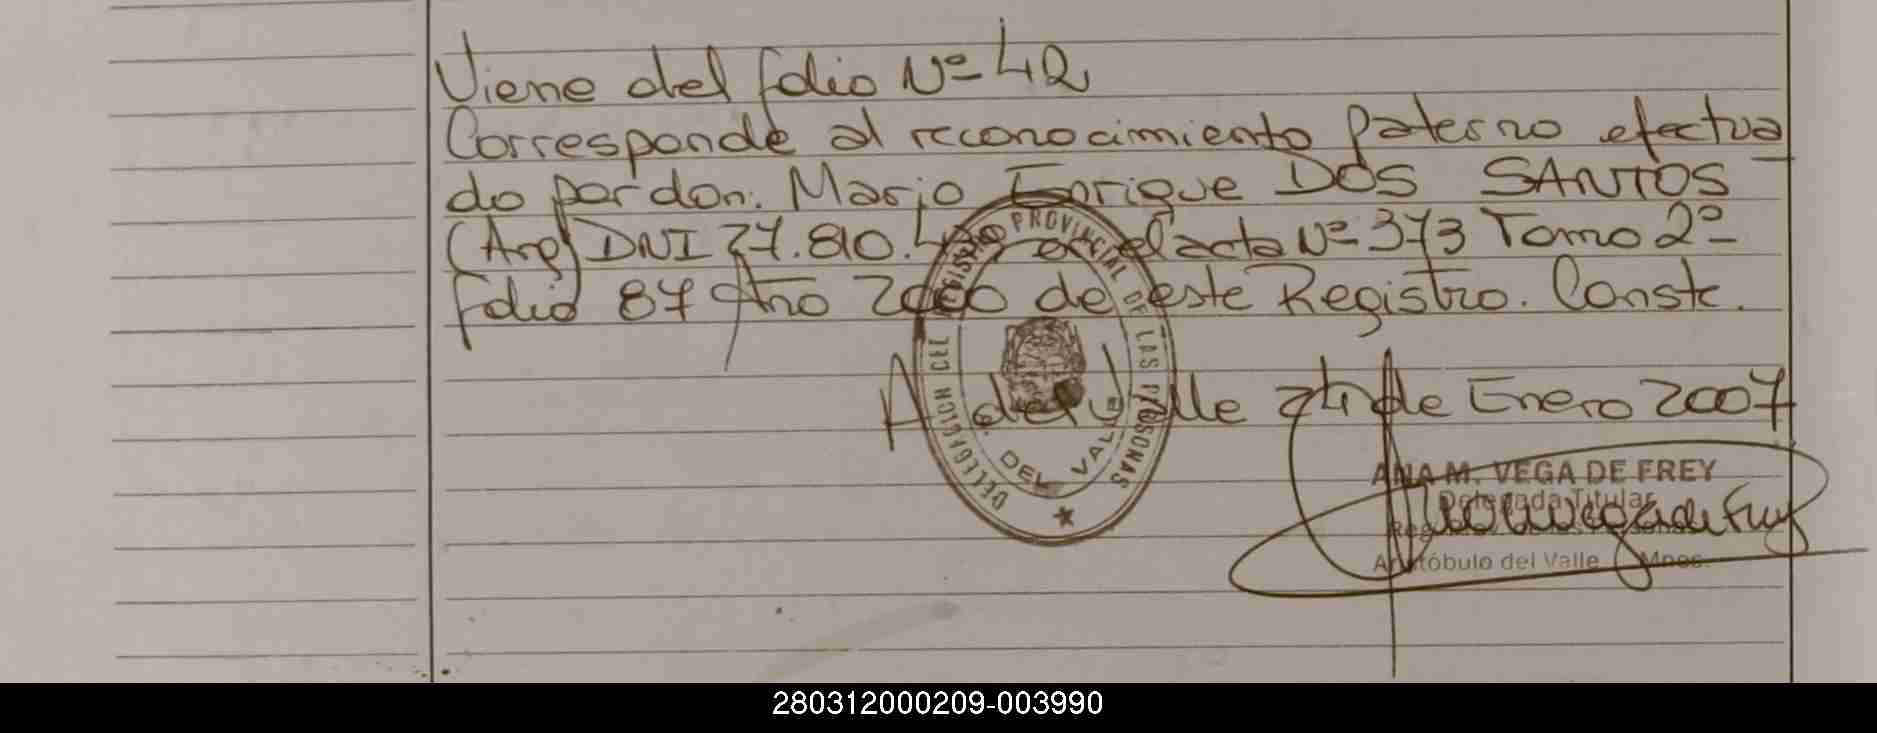 Viene del folio Nº 42
Corresponde al reconocimiento paterno efectua
do por don: Mario Enrique DOS SANTOS
(Arg) DNI 27.810. en el acta Nº 373 Tomo 2º
folio 87 Año 2000 de este Registro. Conste.
A. del Valle 24 de Enero 2007
DELEGACION REGISTRO PROVINCIAL DE LAS PERSONAS
A. DEL VALLE
ANA M. VEGA DE FREY
Delegada Titular
Aristóbulo del Valle Mnes.
280312000209-003990